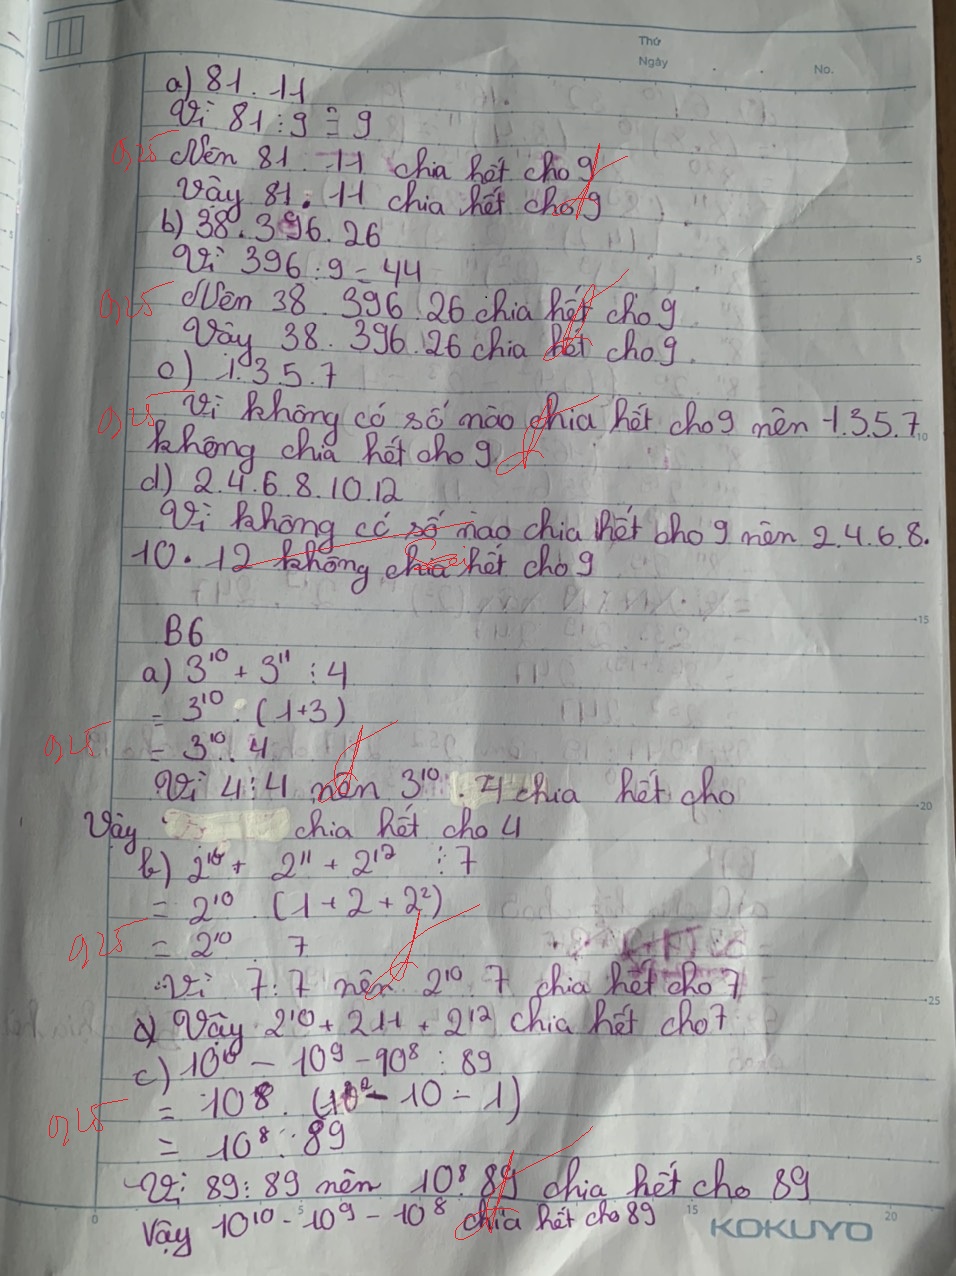 Thứ
Ngày
No.
a) 81 . 11
Vì 81 : 9 = 9
0,25 Nên 81 . 11 chia hết cho 9
Vậy 81 . 11 chia hết cho 9
b) 38 . 396 . 26
Vì 396 : 9 = 44
5
0,25 Nên 38 . 396 . 26 chia hết cho 9
Vậy 38 . 396 . 26 chia hết cho 9.
c) 1.3.5.7
0,25 Vì không có số nào chia hết cho 9 nên 1.3.5.7
10
không chia hết cho 9
d) 2.4.6.8.10.12
Vì không có số nào chia hết cho 9 nên 2.4.6.8.
10 . 12 không chia hết cho 9
15
B6
a) 3¹⁰ + 3¹¹ ⋮ 4
= 3¹⁰ . (1+3)
0,25 = 3¹⁰ . 4
Vì 4 ⋮ 4 nên 3¹⁰ . 4 chia hết cho
20
Vậy chia hết cho 4
b) 2¹⁰ + 2¹¹ + 2¹² ⋮ 7
= 2¹⁰ . (1 + 2 + 2²)
0,25 = 2¹⁰ . 7
Vì 7 : 7 nên 2¹⁰ . 7 chia hết cho 7
25
Vậy 2¹⁰ + 211 + 2¹² chia hết cho 7
c) 10¹⁰ - 10⁹ - 90⁸ : 89
0,25 = 10⁸ . (10² - 10 - 1)
= 10⁸ : 89
Vì 89 : 89 nên 10⁸ . 89 chia hết cho 89
Vậy 10¹⁰ - 10⁹ - 10⁸ chia hết cho 89
0 5 15 20
KOKUYO